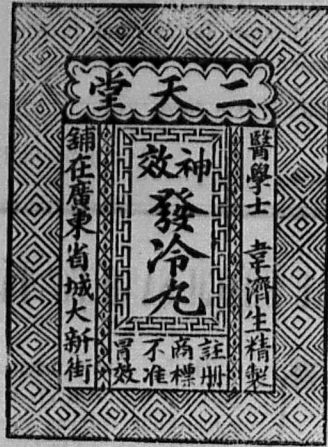 二天堂
醫學士 韋濟生精製
神效
發冷丸
註冊
商標
不准
冒效
鋪在廣東省城大新街